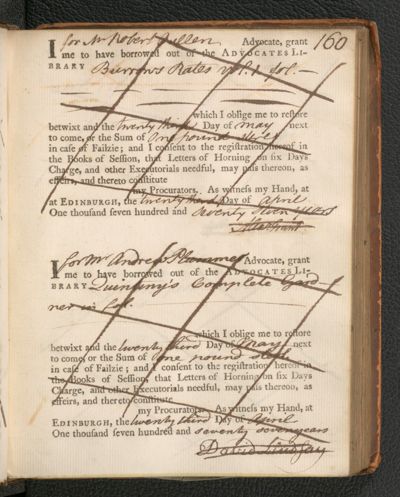 160
I for Mr Robert Cullen Advocate, grant
me to have borrowed out of the ADVOCATES LI-
BRARY Burrows Rates vol. 1. fol. —
which I oblige me to restore
betwixt and the twenty third Day of May next
to come, or the Sum of One pound
in case of Failzie; and I consent to the registration hereof in
the Books of Session, that Letters of Horning on six Days
Charge, and other Executorials needful, may pass thereon, as
effeirs, and thereto constitute
my Procurators. As witness my Hand, at
at EDINBURGH, the twenty third Day of April
One thousand seven hundred and seventy seven years
I for Mr Andrew Advocate, grant
me to have borrowed out of the ADVOCATES LI-
BRARY Quintiny's Complete Gard-
ner in fol.
which I oblige me to restore
betwixt and the twenty third Day of May next
to come, or the Sum of One pound
in case of Failzie; and I consent to the registration hereof in
the Books of Session, that Letters of Horning on six Days
Charge, and other Executorials needful, may pass thereon, as
effeirs, and thereto constitute
my Procurators. As witness my Hand, at
EDINBURGH, the twenty third Day of April
One thousand seven hundred and seventy seven years
David Lindsay